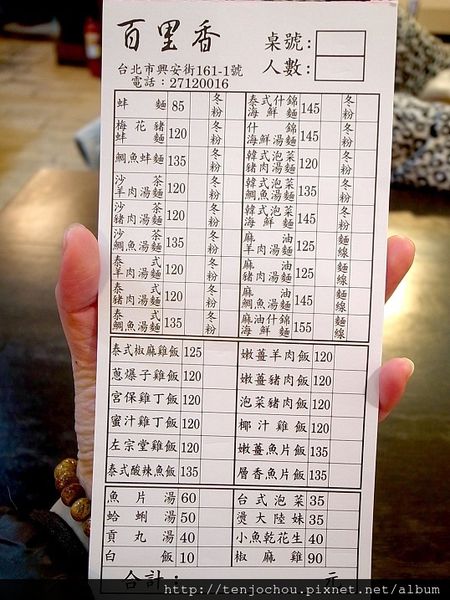 百里香
桌號:
台北市興安街161-1號
人數:
電話:27120016
蚌麵 85 冬粉 泰式什錦海鮮麵 145 冬粉
梅花豬蚌麵 120 冬粉 什錦海鮮湯麵 145 冬粉
鯛魚蚌麵 135 冬粉 韓式泡菜豬肉湯麵 120 冬粉
沙茶羊肉湯麵 120 冬粉 韓式泡菜鯛魚湯麵 135 冬粉
沙茶豬肉湯麵 120 冬粉 韓式泡菜海鮮麵 145 冬粉
沙茶鯛魚湯麵 135 冬粉 麻油羊肉湯麵 125 麵線
泰式羊肉湯麵 120 冬粉 麻油豬肉湯麵 125 麵線
泰式豬肉湯麵 120 冬粉 麻油鯛魚湯麵 145 麵線
泰式鯛魚湯麵 135 冬粉 麻油什錦海鮮麵 155 麵線
泰式椒麻雞飯 125 嫩薑羊肉飯 120
蔥爆子雞飯 120 嫩薑豬肉飯 120
宮保雞丁飯 120 泡菜豬肉飯 120
蜜汁雞丁飯 120 椰汁雞飯 120
左宗堂雞飯 120 嫩薑魚片飯 135
泰式酸辣魚飯 135 層香魚片飯 135
魚片湯 60 台式泡菜 35
蛤蜊湯 50 燙大陸妹 35
貢丸湯 40 小魚乾花生 40
白飯 10 椒麻雞 90
合計: 元
http://tenjochou.pixnet.net/album